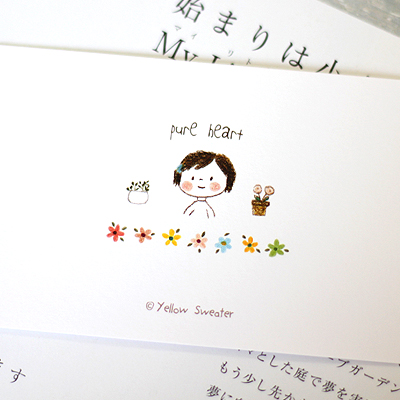 始まりは小
マイ リト
My Li
pure heart
© Yellow Sweater
とした庭で夢を実
もう少し先か
夢に
ます